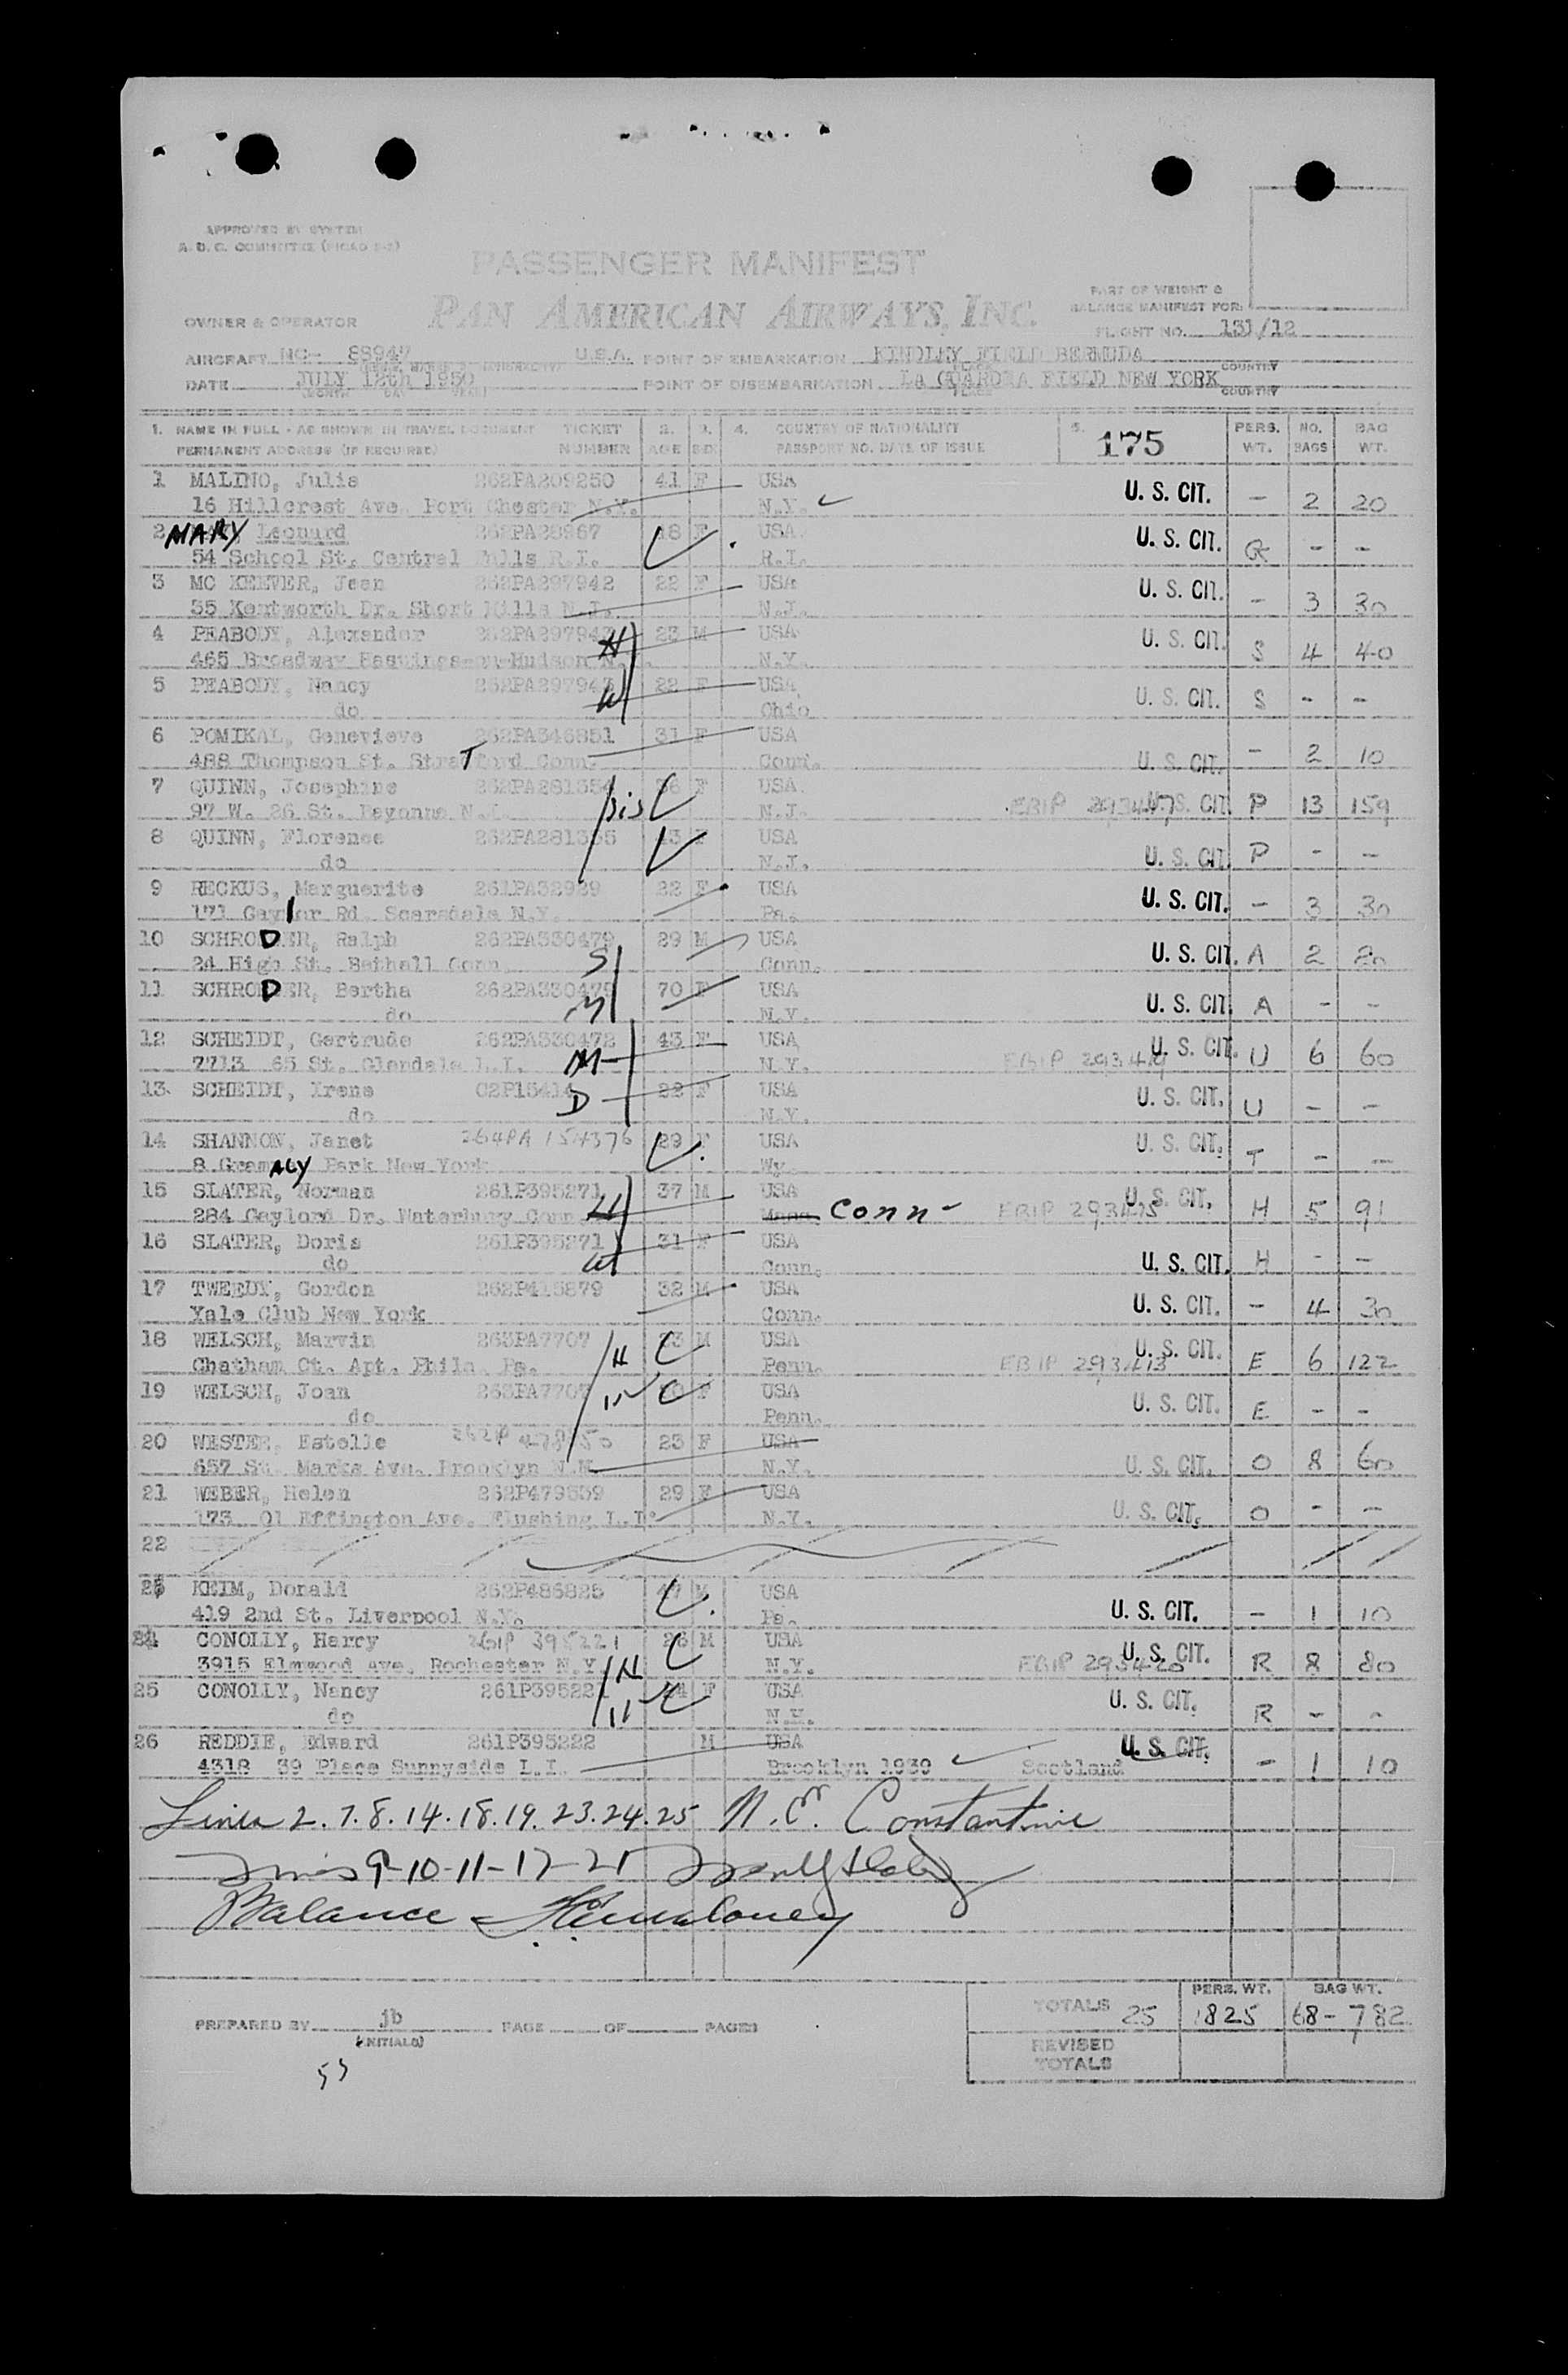 APPROVED BY SYSTEM
A. D. C. COMMITTEE
PASSENGER MANIFEST
PAN AMERICAN AIRWAYS, INC.
PART OF WEIGHT &
BALANCE MANIFEST FOR:
OWNER & OPERATOR
FLIGHT NO. 131/12
AIRCRAFT NC- 88947 U.S.A. POINT OF EMBARKATION KINDLEY FIELD BERMUDA
COUNTRY
DATE JULY 12th 1950 POINT OF DISEMBARKATION LA GUARDIA FIELD NEW YORK
PLACE COUNTRY
1. NAME IN FULL - AS SHOWN IN TRAVEL DOCUMENT TICKET 2. 3. 4. COUNTRY OF NATIONALITY 5. 175 PERS. NO. BAG
PERMANENT ADDRESS (IF REQUIRED) NUMBER AGE SEX PASSPORT NO. DATE OF ISSUE WT. BAGS WT.
1 MALINO, Julia 262PA209250 41 F USA U. S. CIT. - 2 20
16 Hillcrest Ave. Port Chester N.Y. N.Y.
2 MARY Leonard 262PA28967 18 F USA U. S. CIT. G - -
54 School St. Central Falls R.I. R.I.
3 MC KEEVER, Jean 262PA297942 22 F USA U. S. CIT. - 3 30
55 Kentworth Dr. Short Hills N.J. N.J.
4 PEABODY, Alexander 262PA297943 23 M USA U. S. CIT. S 4 40
465 Broadway Hastings-on-Hudson N.Y. H N.Y.
5 PEABODY, Nancy 262PA297943 22 F USA U. S. CIT. S - -
do W Ohio
6 POMIKAL, Genevieve 262PA346851 31 F USA U. S. CIT. - 2 10
488 Thompson St. Stratford Conn. Conn.
7 QUINN, Josephine 262PA281354 36 F USA U. S. CIT. P 13 159
97 W. 26 St. Bayonne N.J. sis N.J. EBIP 293447
8 QUINN, Florence 262PA281355 43 F USA U. S. CIT. P - -
do N.J.
9 RECKUS, Marguerite 261PA32929 22 F USA U. S. CIT. - 3 30
171 Gaylor Rd. Scarsdale N.Y. Pa.
10 SCHRODER, Ralph 262PA330479 29 M USA U. S. CIT. A 2 20
24 High St. Bethall Conn. S Conn.
11 SCHRODER, Bertha 262PA330479 70 F USA U. S. CIT. A - -
do M N.Y.
12 SCHEIDT, Gertrude 262PA330472 43 F USA U. S. CIT. U 6 60
7713 65 St. Glendale L.I. M N.Y. EBIP 293419
13 SCHEIDT, Irene 02P15414 22 F USA U. S. CIT. U - -
do D N.Y.
14 SHANNON, Janet 264PA 154376 29 F USA U. S. CIT. T - -
8 Gramacy Park New York Wy
15 SLATER, Norman 261P395271 37 M USA U. S. CIT. H 5 91
284 Gaylord Dr. Waterbury Conn. H Mass Conn - EBIP 293425
16 SLATER, Doris 261P395271 31 F USA U. S. CIT. H - -
do W Conn.
17 TWEEDY, Gordon 262P415879 32 M USA U. S. CIT. - 4 30
Yale Club New York Conn.
18 WELSCH, Marvin 263PA7707 23 M USA U. S. CIT. E 6 122
Chatham Ct. Apt. Phila. Pa. H Penn. EBIP 293413
19 WELSCH, Joan 263PA7707 F USA U. S. CIT. E - -
do W Penn.
20 WESTER, Estelle 23 F USA U. S. CIT. O 8 60
657 St. Marks Ave. Brooklyn N.Y. N.Y.
21 WEBER, Helen 262P479559 29 F USA U. S. CIT. O - -
173 01 Effington Ave. Flushing L.I. N.Y.
22
23 KEIM, Donald 262P486825 47 M USA U. S. CIT. - 1 10
419 2nd St. Liverpool N.Y. Pa.
24 CONOLLY, Harry 261P 395221 26 M USA U. S. CIT. R 8 80
3915 Elmwood Ave. Rochester N.Y. H N.Y. EBIP 293420
25 CONOLLY, Nancy 261P395221 24 F USA U. S. CIT. R - -
do W N.Y.
26 REDDIE, Edward 261P395222 M USA U. S. CIT. - 1 10
4318 39 Place Sunnyside L.I. Brooklyn 1939 Scotland
Lines 2. 7. 8. 14. 18. 19. 23. 24. 25 N. E. Constantine
Lines 9-10-11-17-21
Balance -
PERS. WT. BAG WT.
TOTALS 25 1825 68 - 782
PREPARED BY jb PAGE OF PAGES
(INITIALS)
REVISED
TOTALS